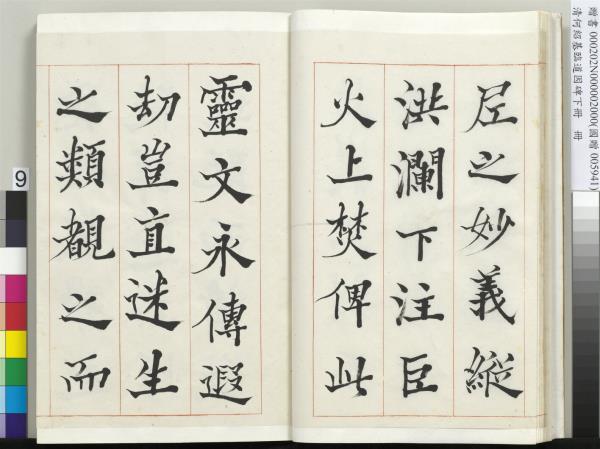 贈書 000202N000002000(國贈 005941)
清何紹基臨道因碑下冊 冊
尼之妙義縱
洪瀾下注巨
火上焚俾此
靈文永傳遐
劫豈直迷生
之類覩之而
9